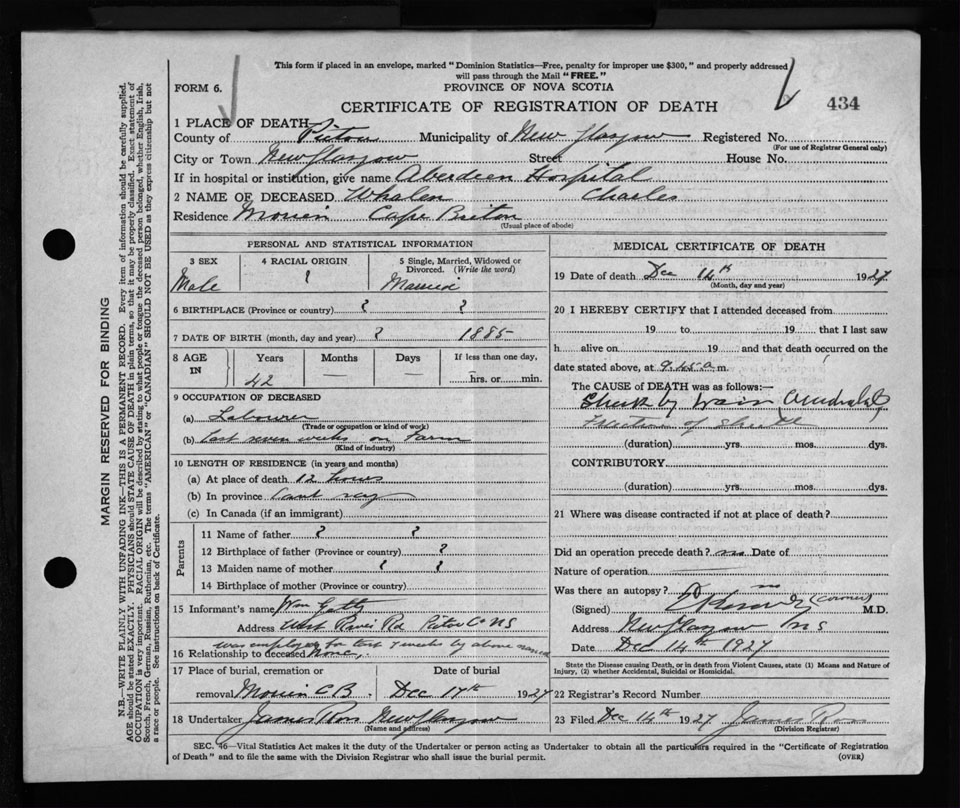 This form if placed in an envelope, marked "Dominion Statistics—Free, penalty for improper use $300," and properly addressed
will pass through the Mail "FREE."
FORM 6.
PROVINCE OF NOVA SCOTIA
CERTIFICATE OF REGISTRATION OF DEATH
434
1 PLACE OF DEATH
County of Pictou Municipality of New Glasgow Registered No.
(For use of Registrar General only)
City or Town New Glasgow Street House No.
If in hospital or institution, give name Aberdeen Hospital
2 NAME OF DECEASED Whalen Charles
Residence Morien Cape Breton
(Usual place of abode)
PERSONAL AND STATISTICAL INFORMATION
3 SEX
Male
4 RACIAL ORIGIN
?
5 Single, Married, Widowed or
Divorced. (Write the word)
Married
6 BIRTHPLACE (Province or country) ? ?
7 DATE OF BIRTH (month, day and year) ? 1885
8 AGE
IN
Years
42
Months
—
Days
—
If less than one day,
hrs. or min.
9 OCCUPATION OF DECEASED
(a) Labourer
(Trade or occupation or kind of work)
(b) last seven weeks on Farm
(Kind of industry)
10 LENGTH OF RESIDENCE (in years and months)
(a) At place of death 12 hours
(b) In province Cant say
(c) In Canada (if an immigrant)
Parents
11 Name of father ? ?
12 Birthplace of father (Province or country) ?
13 Maiden name of mother ? ?
14 Birthplace of mother (Province or country)
15 Informant's name Wm
Address West River Rd Pictou Co NS
was employed for last 7 weeks by above named
16 Relationship to deceased None
17 Place of burial, cremation or
removal Morien C B.
Date of burial
Dec 17th 1927
18 Undertaker James Ross New Glasgow
(Name and address)
MEDICAL CERTIFICATE OF DEATH
19 Date of death Dec 14th 1927
(Month, day and year)
20 I HEREBY CERTIFY that I attended deceased from
19 to 19 that I last saw
h alive on 19 and that death occurred on the
date stated above, at 9.45 a m.
The CAUSE of DEATH was as follows:—
Struck by train Accidental
Fracture of Skull
(duration) yrs. mos. dys.
CONTRIBUTORY
(duration) yrs. mos. dys.
21 Where was disease contracted if not at place of death?
Did an operation precede death? no Date of
Nature of operation
Was there an autopsy? no
(Signed) (Coroner) M.D.
Address New Glasgow N S
Date Dec 14th 1927
State the Disease causing Death, or in death from Violent Causes, state (1) Means and Nature of
Injury, (2) whether Accidental, Suicidal or Homicidal.
22 Registrar's Record Number
23 Filed Dec 14th 1927 James Ross
(Division Registrar)
SEC. 46—Vital Statistics Act makes it the duty of the Undertaker or person acting as Undertaker to obtain all the particulars required in the "Certificate of Registration
of Death" and to file the same with the Division Registrar who shall issue the burial permit.
(OVER)
MARGIN RESERVED FOR BINDING
N.B.—WRITE PLAINLY WITH UNFADING INK—THIS IS A PERMANENT RECORD. Every item of information should be carefully supplied.
AGE should be stated EXACTLY. PHYSICIANS should STATE CAUSE OF DEATH in plain terms, so that it may be properly classified. Exact statement of
OCCUPATION is very important. RACIAL ORIGIN will be described by stating to what people or tongue the deceased person belonged, whether English, Irish,
Scotch, French, German, Russian, Ruthenian, etc. The terms "AMERICAN" or "CANADIAN" SHOULD NOT BE USED as they express citizenship but not
a race or people. See instructions on back of Certificate.